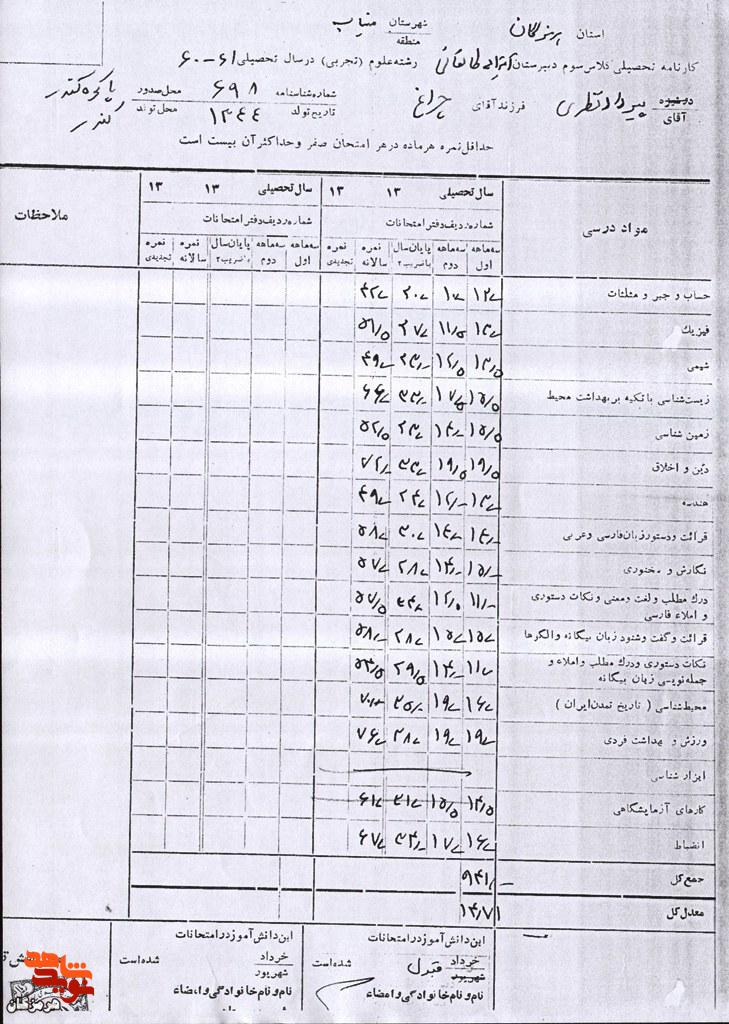 استان هرمزگان شهرستان میناب
منطقه
کارنامه تحصیلی کلاس سوم دبیرستان آیت اله طالقانی رشته علوم (تجربی) در سال تحصیلی ۶۱-۶۰
دوشیزه
آقای
فرزند آقای چراغ شماره شناسنامه ۶۹۸ محل صدور
تاریخ تولد ۱۳۴۴ محل تولد
حداقل نمره هر ماده در هر امتحان صفر و حداکثر آن بیست است
مواد درسی سال تحصیلی ۱۳ ۱۳ سال تحصیلی ۱۳ ۱۳ ملاحظات
شماره ردیف دفتر امتحانات شماره ردیف دفتر امتحانات
سه‌ماهه اول سه‌ماهه دوم پایان سال با ضریب ۲ نمره سالانه نمره تجدیدی سه‌ماهه اول سه‌ماهه دوم پایان سال با ضریب ۲ نمره سالانه نمره تجدیدی
حساب و جبر و مثلثات ۱۲ ۱۰ ۲۰ ۴۲
فیزیک ۱۳ ۱۱/۵ ۲۷ ۵۱/۵
شیمی ۱۳/۵ ۱۲/۵ ۲۳ ۴۹
زیست‌شناسی با تکیه بر بهداشت محیط ۱۵/۵ ۱۷/۵ ۳۳ ۶۶
زمین شناسی ۱۵/۵ ۱۴ ۲۳ ۵۲/۵
دین و اخلاق ۱۹/۵ ۱۹/۵ ۳۳ ۷۲
هندسه ۱۳ ۱۲ ۲۴ ۴۹
قرائت و دستور زبان فارسی و عربی ۱۴ ۱۴ ۳۰ ۵۸
نگارش و ۱۵ ۱۴ ۲۸ ۵۷
درک مطلب و لغت و معنی و نکات دستوری
و املاء فارسی ۱۱ ۱۲/۵ ۳۴ ۵۷/۵
قرائت و گفت و شنود زبان بیگانه و الگوها ۱۵ ۱۵ ۲۸ ۵۸
نکات دستوری و درک مطلب و املاء و
جمله‌نویسی زبان بیگانه ۱۱ ۱۴ ۲۹/۵ ۵۴/۵
محیط‌شناسی ( تاریخ تمدن ایران ) ۱۶ ۱۹ ۳۵
ورزش و بهداشت فردی ۱۹ ۱۹ ۳۸ ۷۶
ابزار شناسی
کارهای آزمایشگاهی ۱۴/۵ ۱۵/۵ ۳۱ ۶۱
انضباط ۱۶ ۱۷ ۳۴ ۶۷
جمع کل ۹۴۱
معدل کل ۱۴/۷۱
این دانش آموز در امتحانات این دانش آموز در امتحانات
خرداد
شهریور
قبول شده است خرداد
شهریور
شده است
نام و نام خانوادگی و امضاء نام و نام خانوادگی و امضاء
نوید شاهد
هرمزگان